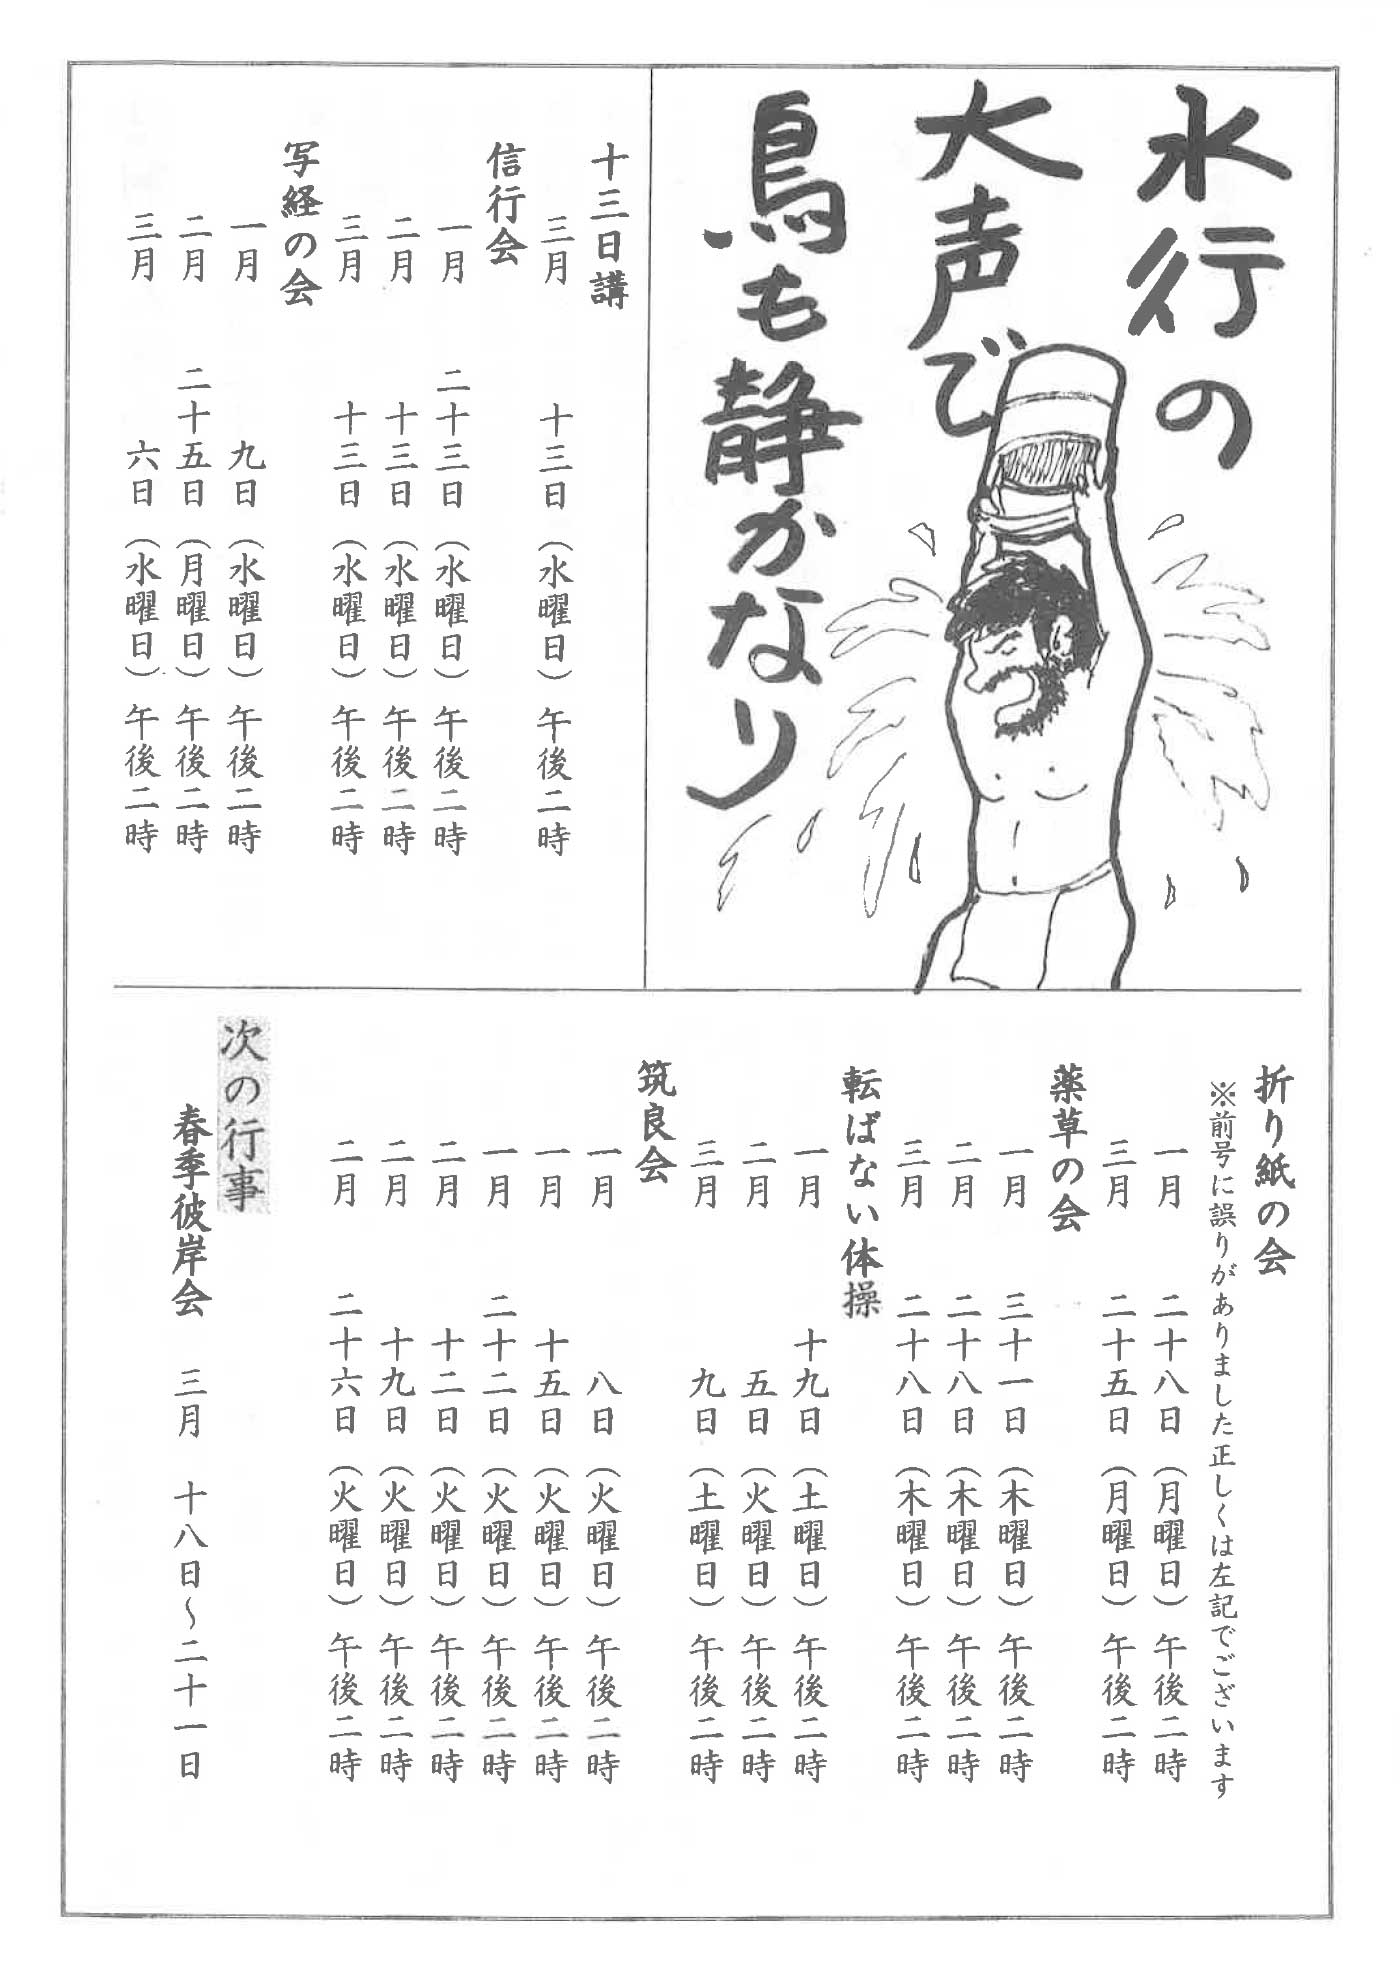 水行の
大声で
鳥も静かなり
十三日講
三月 十三日（水曜日）午後二時
信行会
一月 二十三日（水曜日）午後二時
二月 十三日（水曜日）午後二時
三月 十三日（水曜日）午後二時
写経の会
一月 九日（水曜日）午後二時
二月 二十五日（月曜日）午後二時
三月 六日（水曜日）午後二時
折り紙の会
※前号に誤りがありました正しくは左記でございます
一月 二十八日（月曜日）午後二時
三月 二十五日（月曜日）午後二時
薬草の会
一月 三十一日（木曜日）午後二時
二月 二十八日（木曜日）午後二時
三月 二十八日（木曜日）午後二時
転ばない体操
一月 十九日（土曜日）午後二時
二月 五日（火曜日）午後二時
三月 九日（土曜日）午後二時
筑良会
一月 八日（火曜日）午後二時
一月 十五日（火曜日）午後二時
一月 二十二日（火曜日）午後二時
二月 十二日（火曜日）午後二時
二月 十九日（火曜日）午後二時
二月 二十六日（火曜日）午後二時
次の行事
春季彼岸会 三月 十八日～二十一日